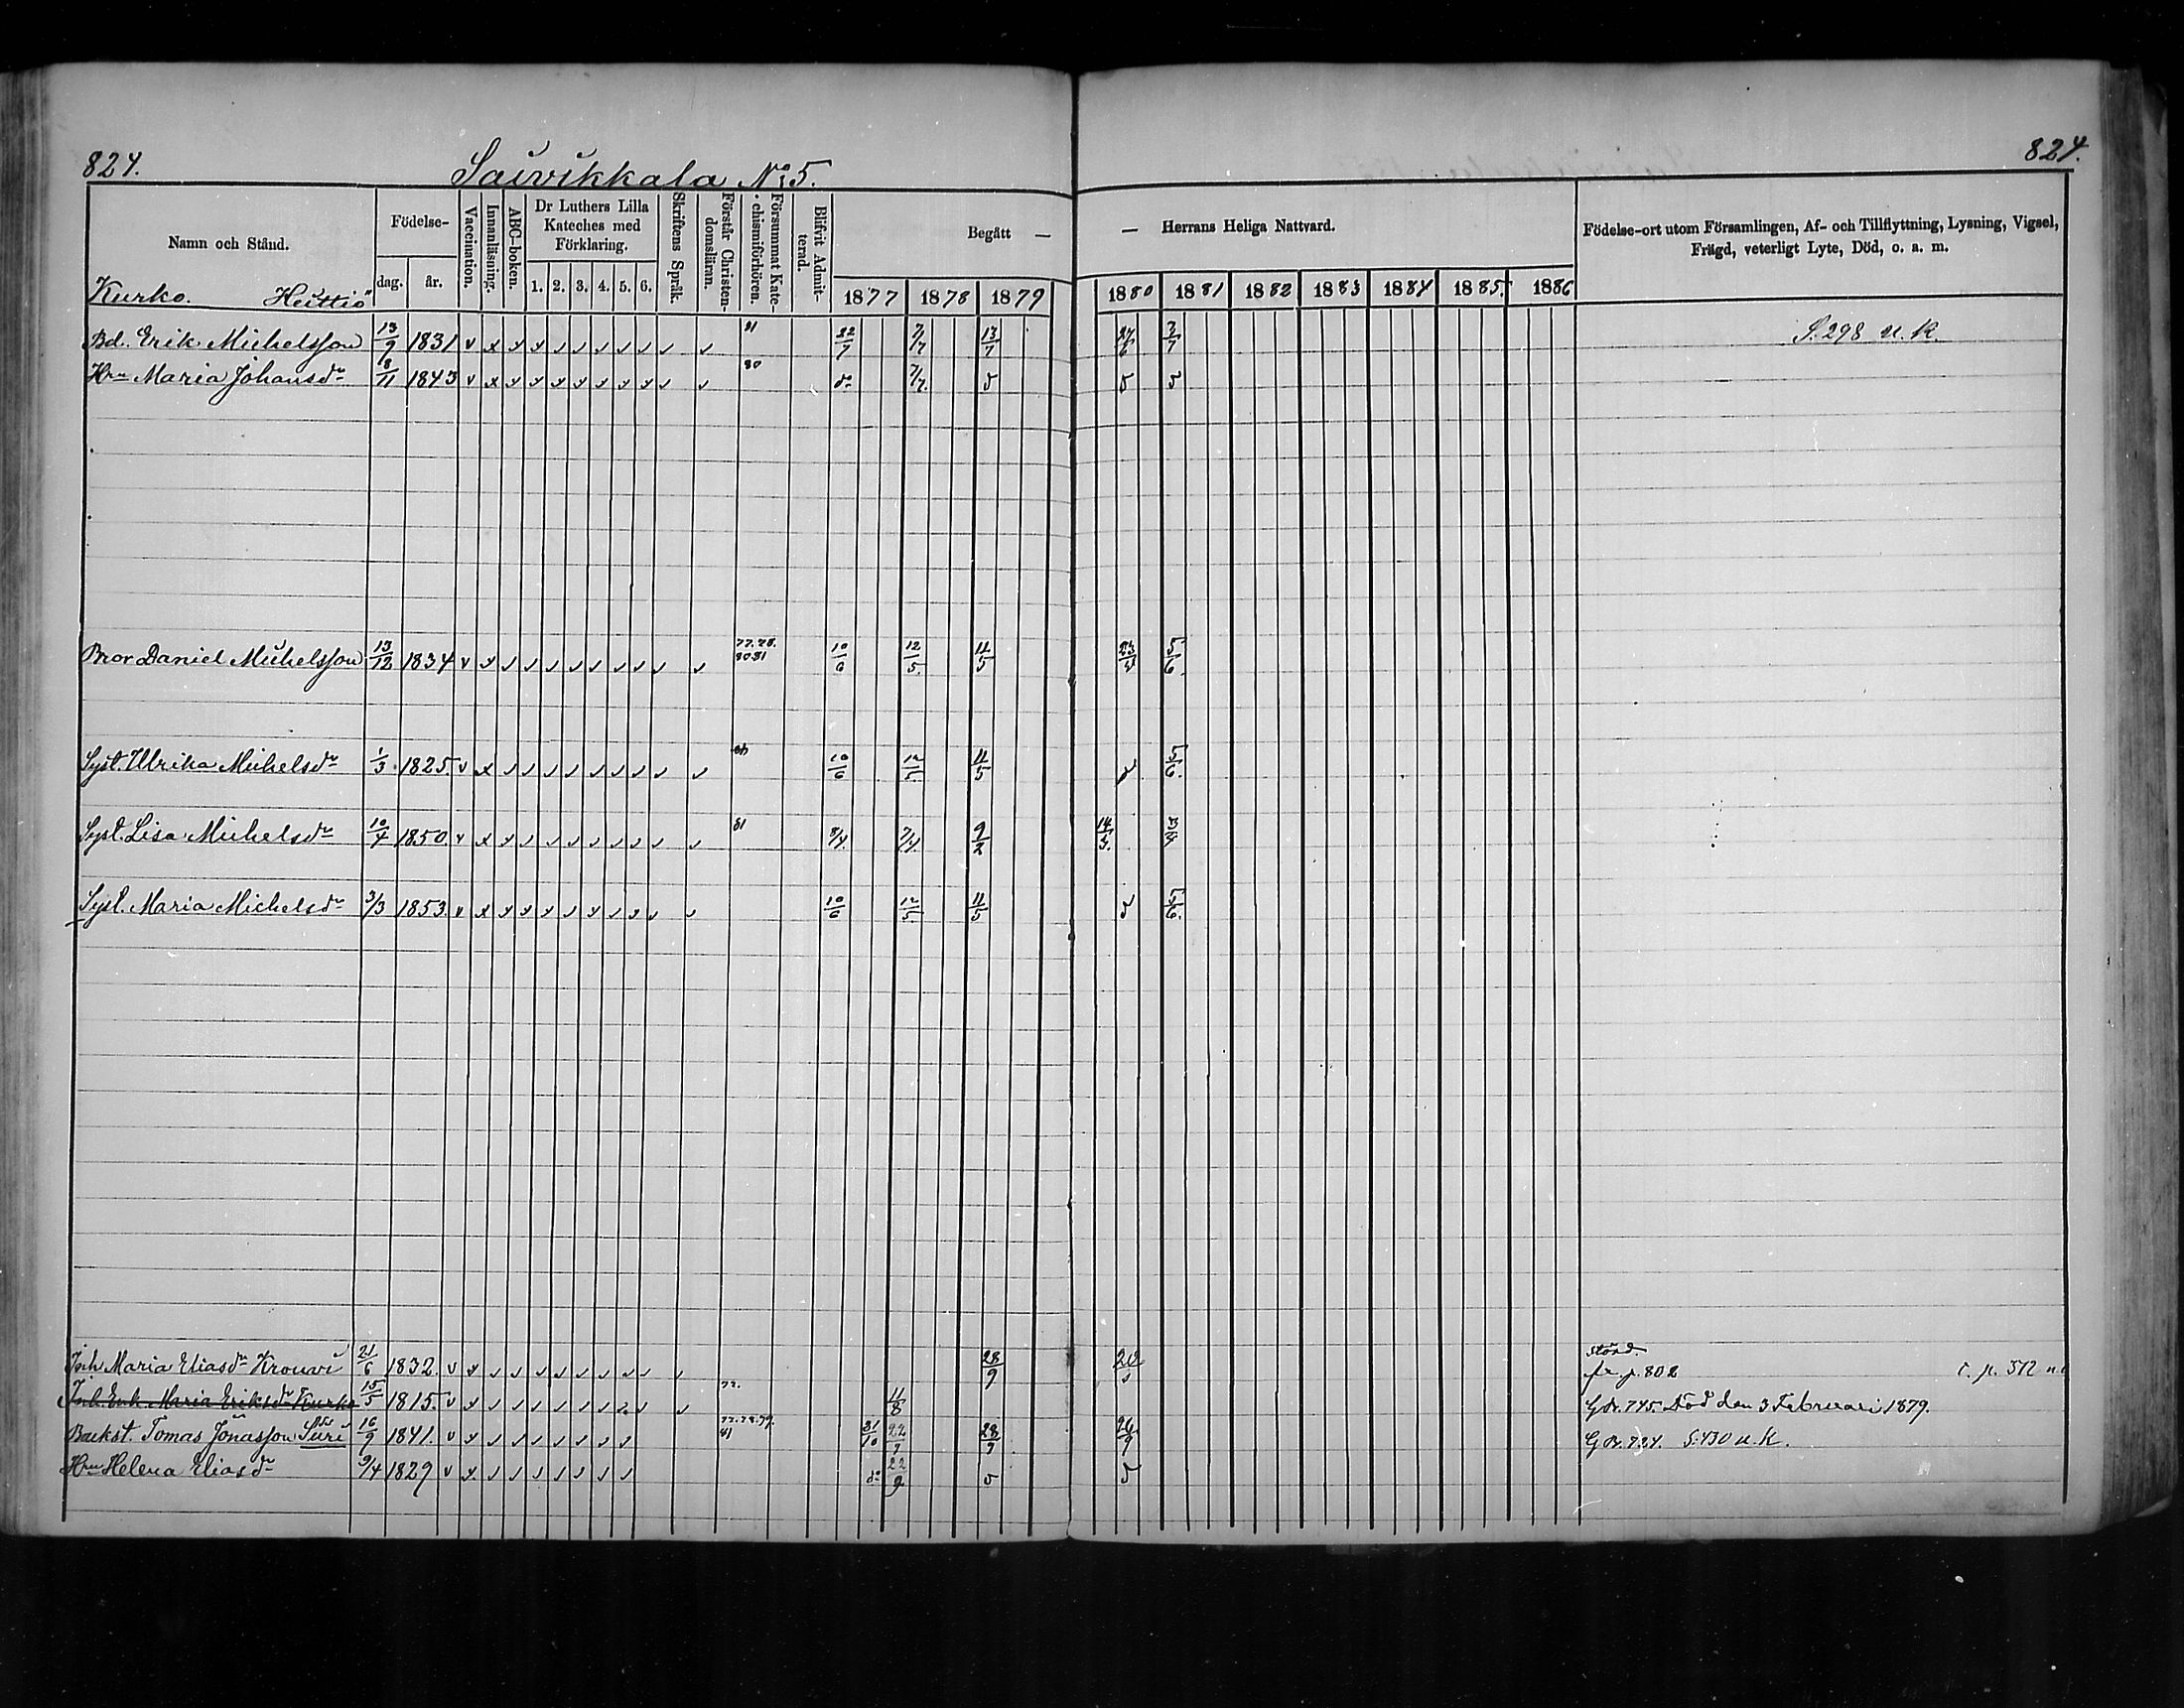 824. Saivikkala No 5. 824.
Namn och Stånd. Födelse- dag. år. Vaccination. Innanläsning. ABC-boken. Dr Luthers Lilla Kateches med Förklaring. 1. 2. 3. 4. 5. 6. Skriftens Språk. Förstår Christendomsläran. Försummat Katechismiförhören. Blifvit Admitterad. Begått — — Herrans Heliga Nattvard. Födelse-ort utom Församlingen, Af- och Tillflyttning, Lysning, Vigsel, Frägd, veterligt Lyte, Död, o. a. m.
1877 1878 1879 1880 1881 1882 1883 1884 1885. 1886
Kurko. Heittiö
Bd. Erik Michelsson 13/9 1831 81 22/7 7/7 13/7 27/6 3/7 S. 298 n. k.
Hrn Maria Johansdr 18/11 1843 80 do 7/7.
Bror Daniel Michelsson 13/12 1834 77.78. 8081 10/6 12/5. 11/5 5/6.
Syst. Ulrika Michelsdr 1/3. 1825. 10/6 12/5. 11/5 5/6.
Syst. Lisa Michelsdr 10/4 1850. 81 8/4. 7/4. 9/2 14/3.
Syst. Maria Michelsdr 3/3 1853. 10/6 12/5. 11/5 5/6.
Inh Maria Eliasdr Krouvi 21/6 1832. 28/9 fr. p. 802 t. p. 512 n.
Inh. Enk. Maria Eriksdr Kurko 15/5 1815. 77. 11/8 G Br. 745. Död den 3 Februari 1879.
Backst. Tomas Jonasson Suri 16/9 1841. 77.78.79. 81 21/10 22/9 28/9 26/9 G Br. 724. S. 430 n. k.
Hrn Helena Eliasdr 9/4 1829 do 22/9